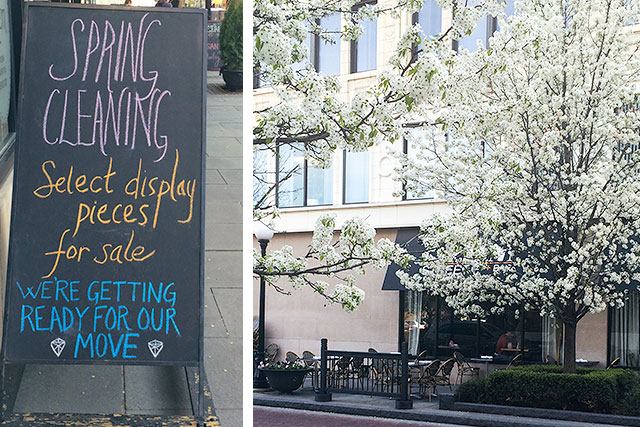 SPRING
CLEANING
Select display
pieces
for sale
WE'RE GETTING
READY FOR OUR
MOVE